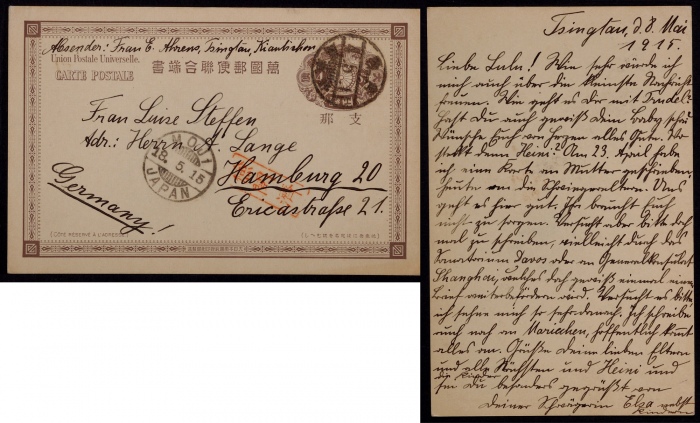 Absender: Frau E. Ahrens, Tsingtau, Kiautschou
Union Postale Universelle.
CARTE POSTALE
萬國郵便聯合端書
支那
Frau Luise Steffen
Adr: Herrn A. Lange
Hamburg 20
Ericastraße 21.
Germany!
MOJI
18.5.15
JAPAN
Tsingtau, d. 8. Mai
1915.
Liebe Lulu! Wie sehr würde ich
mich auch über die kleinste Nachricht
freuen. Wie geht es Dir mit Trudel?
Hast du auch gewiß dein Baby schon
Wünsche Euch von Herzen alles Gute. Wo
steckt denn Heini? Am 23. April habe
ich eine Karte an Mutter geschrieben,
heute an die Schwiegereltern. Uns
geht es hier gut. Ihr braucht Euch
nicht zu sorgen. Versucht aber bitte doch
mal zu schreiben, vielleicht durch das
Sanatorium Davos oder an Generalkonsulat
Shanghai, welches doch gewiß einmal einen
Brief weiterbefördern wird. Versucht es bitte,
ich sehne mich so sehr danach. Ich schreibe
auch noch an Mariechen, hoffentlich kommt
alles an. Grüße deine lieben Eltern
und alle Nächsten und Heini und
die Kinder
sei Du besonders gegrüßt von
Deiner Schwägerin Elsa nebst
Kindern